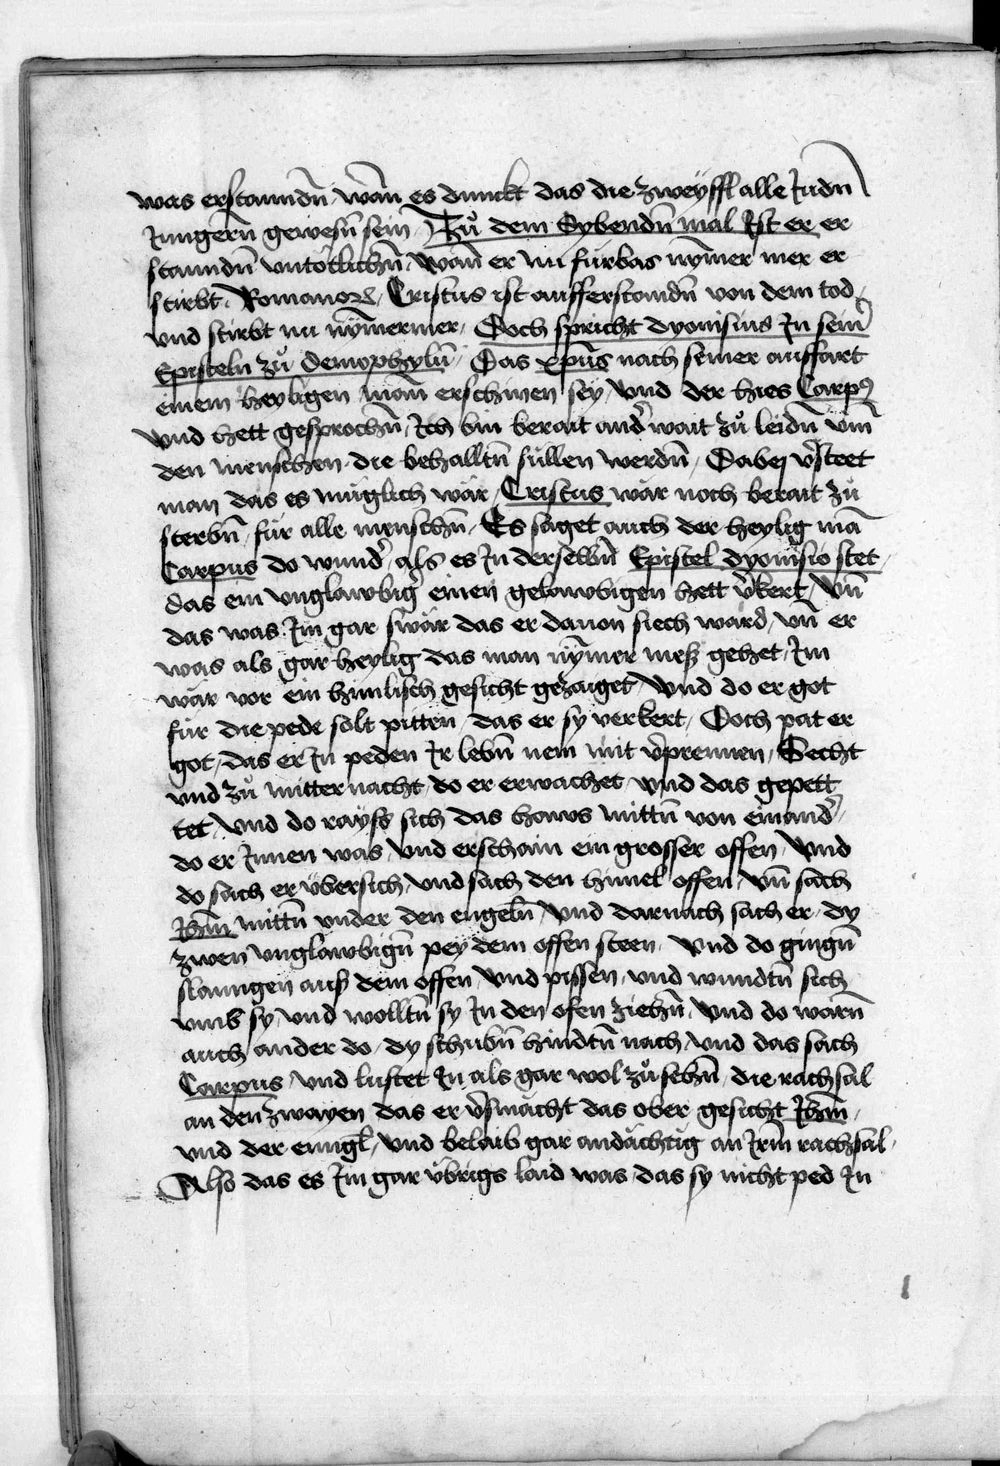 was erstanndn̄ wān es dunckt das die zweÿffl alle in dn̄
Jungern̄ gewesn̄ sein Zů dem Sybendn̄ mal Ist er er
stanndn̄ untötlichn̄ wān er nu fürbas nȳmer mer er
stirbt Romanoꝝ Cristus ist aufferstandn̄ von dem tod
und stirbt nu nȳmermer Doch spricht dyonisius Jn sein̄
Episteln zů demophylū Das xp̄us nach seiner auffart
einem heyligen man̄ erschinen sey und der hies Carpꝰ
und hett gesprochn̄ Jch bin berait and̓wait zů leidn̄ um̄
den menschen die behalltn̄ süllen werdn̄ Dabej v̓steet
man das es müglich wär Cristus wär noch berait zů
sterbn̄ für alle menschn̄ Es saget auch der heylig mā
Carpus do wund̓ als es Jn derselbn̄ Epistel dyonisio stet
das ein unglawbig̓ einen gelawbigen hett v̓kert Un̄
das was Jm gar swär das er davon siech ward un̄ er
was als gar heylig das man nȳmer mess gehet Jm
wär vor ein himlisch gesicht gezaiget und do er got
für die pede solt pitten das er sy verkert Doch pat er
got das er Jn peden Jr lebn̄ nem mit v̓prennen Secht
und zů mitternacht do er erwachet und das gepett
tet und do rayss sich das haws mittn̄ von einand̓
do er Jnnen was und erschain ein grosser offen und
do sach er übersich und sach den himel offen un̄ sach
Jhm̄ mittn̄ under den engeln̄ und darnach sach er dy
zwen unglawbign̄ pey dem offen steen und do gingn̄
slanngen auss dem offen und pissen und wundtn̄ sich
umb sy und wolltn̄ sy Jn den ofen ziehn̄ und do warn̄
auch ander do dy schubn̄ hindtn̄ nach und das sach
Carpus und lustet Jn als gar wol zů sehn̄ die rachsal
an den zwayen das er v̓smächt das ober gesicht Jhm̄
und der enngl̄ und belaib gar andächtig an Jrm̄ rachsal
Also das es Jm gar übrigs laid was das sy nicht ped Jn